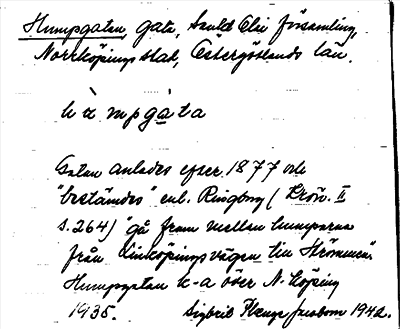 Humpgatan gata, Sankt Olai församling,
Norrköpings stad, Östergötlands län.
hùmpgáta
Gatan anlades efter 1877 och
"bestämdes" enl. Ringborg (Krön. II
s. 264) "gå fram mellan humparna
från Linköpingsvägen till Strömmen".
Humpgatan k-a över N-köping
1935. Sigbrit Plænge Jacobson 1942.